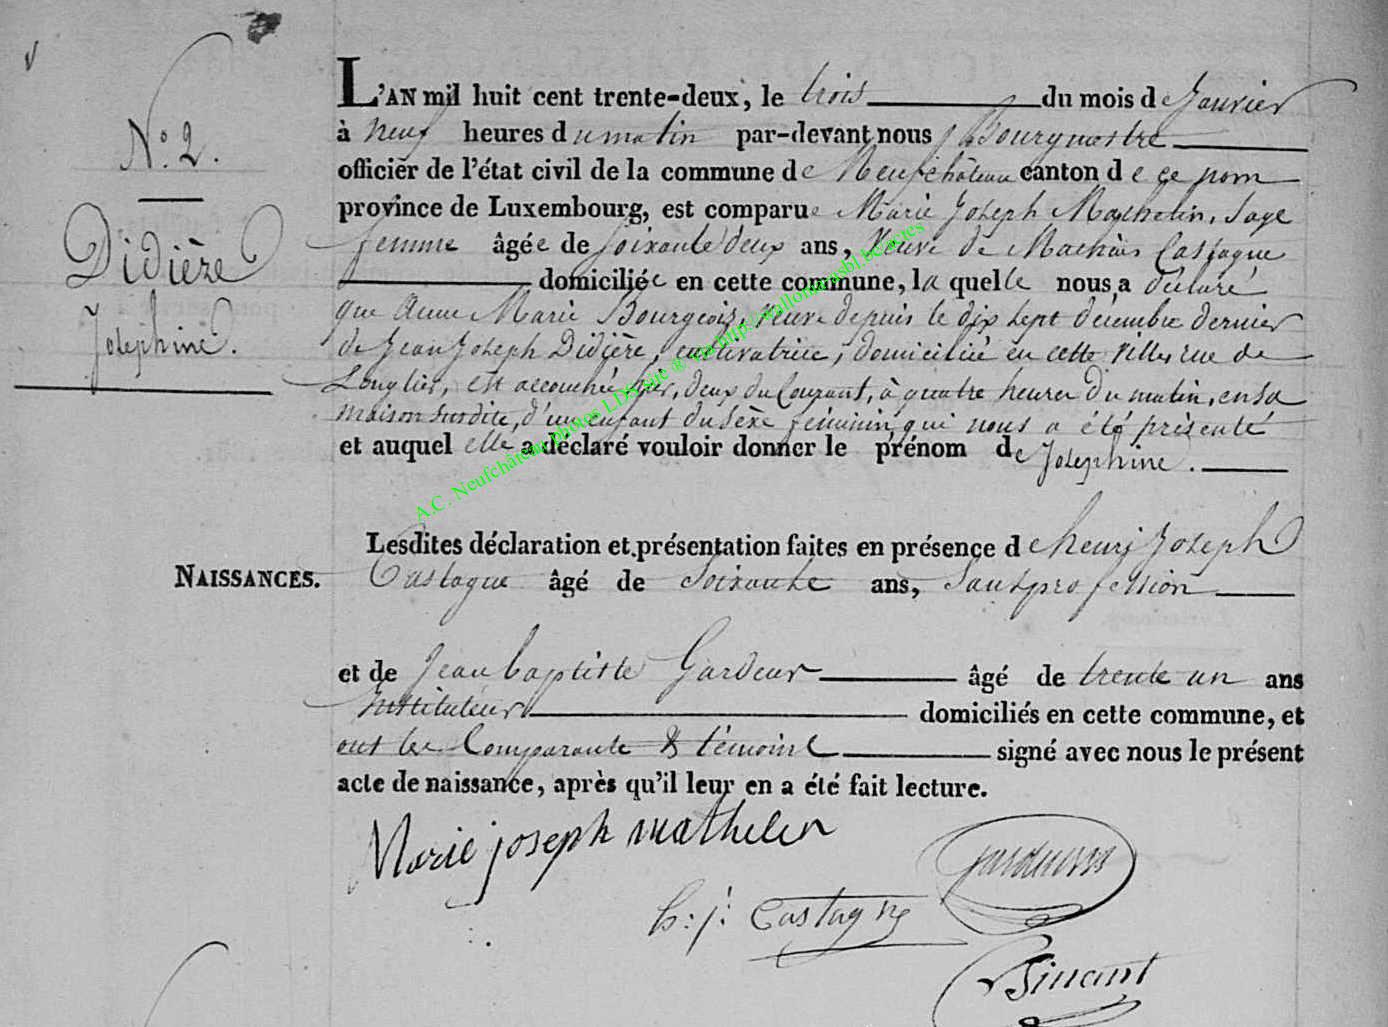 N.° 2.
Didière
Josephine.
NAISSANCES.
L'AN mil huit cent trente-deux, le trois du mois de Janvier
à neuf heures du matin par-devant nous Bourgmestre
officier de l'état civil de la commune de Neufchâteau canton de ce nom
province de Luxembourg, est comparue Marie Joseph Mathelin, sage
femme âgée de soixante deux ans, Veuve de Castagne
domiciliée en cette commune, la quelle nous a déclaré
que Anne Marie Bourgeois, veuve depuis le dix sept decembre dernier
de Jean Joseph Didière, cultivatrice, domiciliée en cette ville rue de
Longlier, est accouchée hier, deux du Courant, à quatre heures du matin, en sa
maison susdite, d'un enfant du sèxe féminin qui nous a été présenté
et auquel elle a déclaré vouloir donner le prénom de Josephine.
Lesdites déclaration et présentation faites en présence de henri Joseph
Castagne âgé de Soixante ans, Sans profession
et de Jean baptiste Gardeur âgé de trente un ans
Instituteur domiciliés en cette commune, et
ont les Comparante & témoins signé avec nous le présent
acte de naissance, après qu'il leur en a été fait lecture.
Marie joseph mathelin
h: j: Castagne
A.C. Neufchâteau photos LDS Site ® via http://wallonia.asbl.be/acres